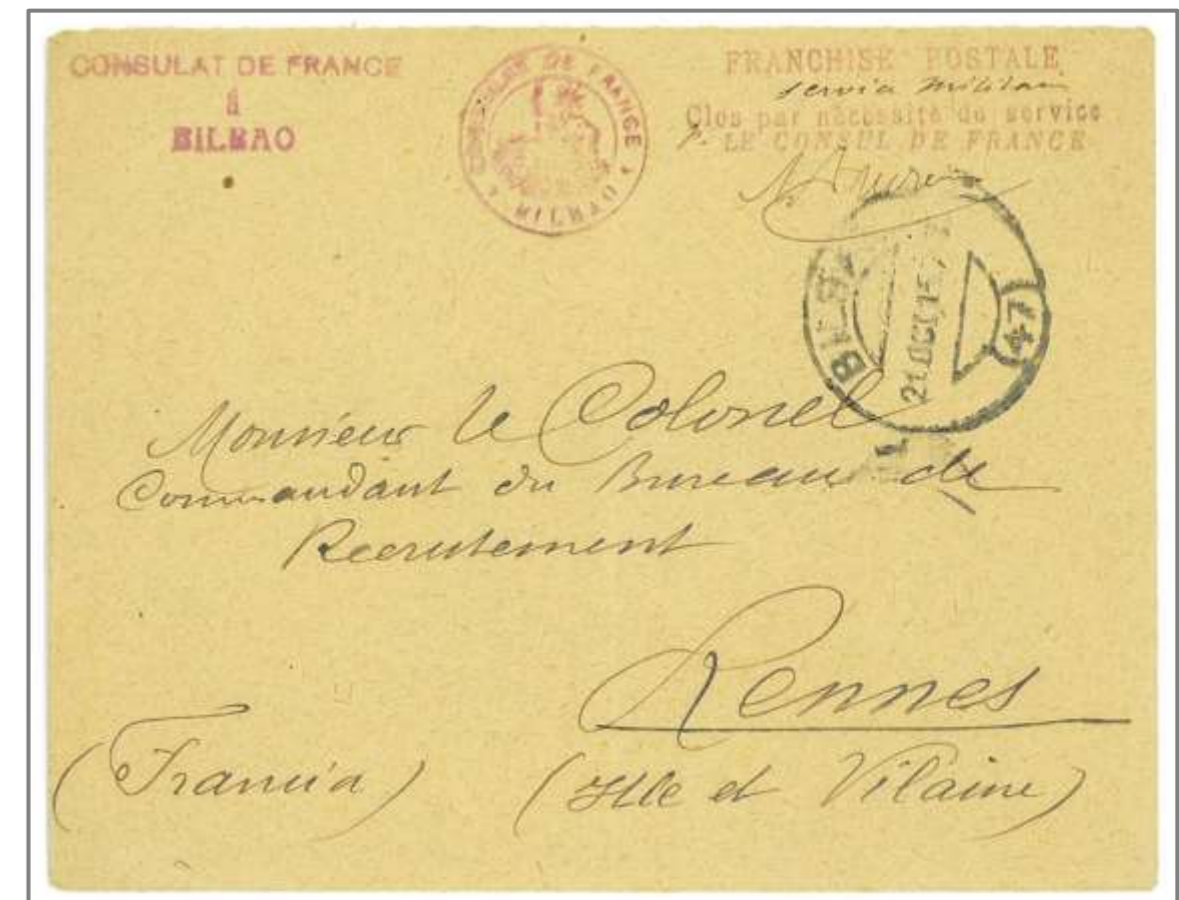 CONSULAT DE FRANCE
à
BILBAO
CONSULAT DE FRANCE
BILBAO
FRANCHISE POSTALE
service militaire
Clos par nécessité de service
p. LE CONSUL DE FRANCE
BILB
21.OCT.15
(47)
Monsieur le Colonel
Commandant du Bureau de
Recrutement
Rennes
(Francia) (Ille et Vilaine)